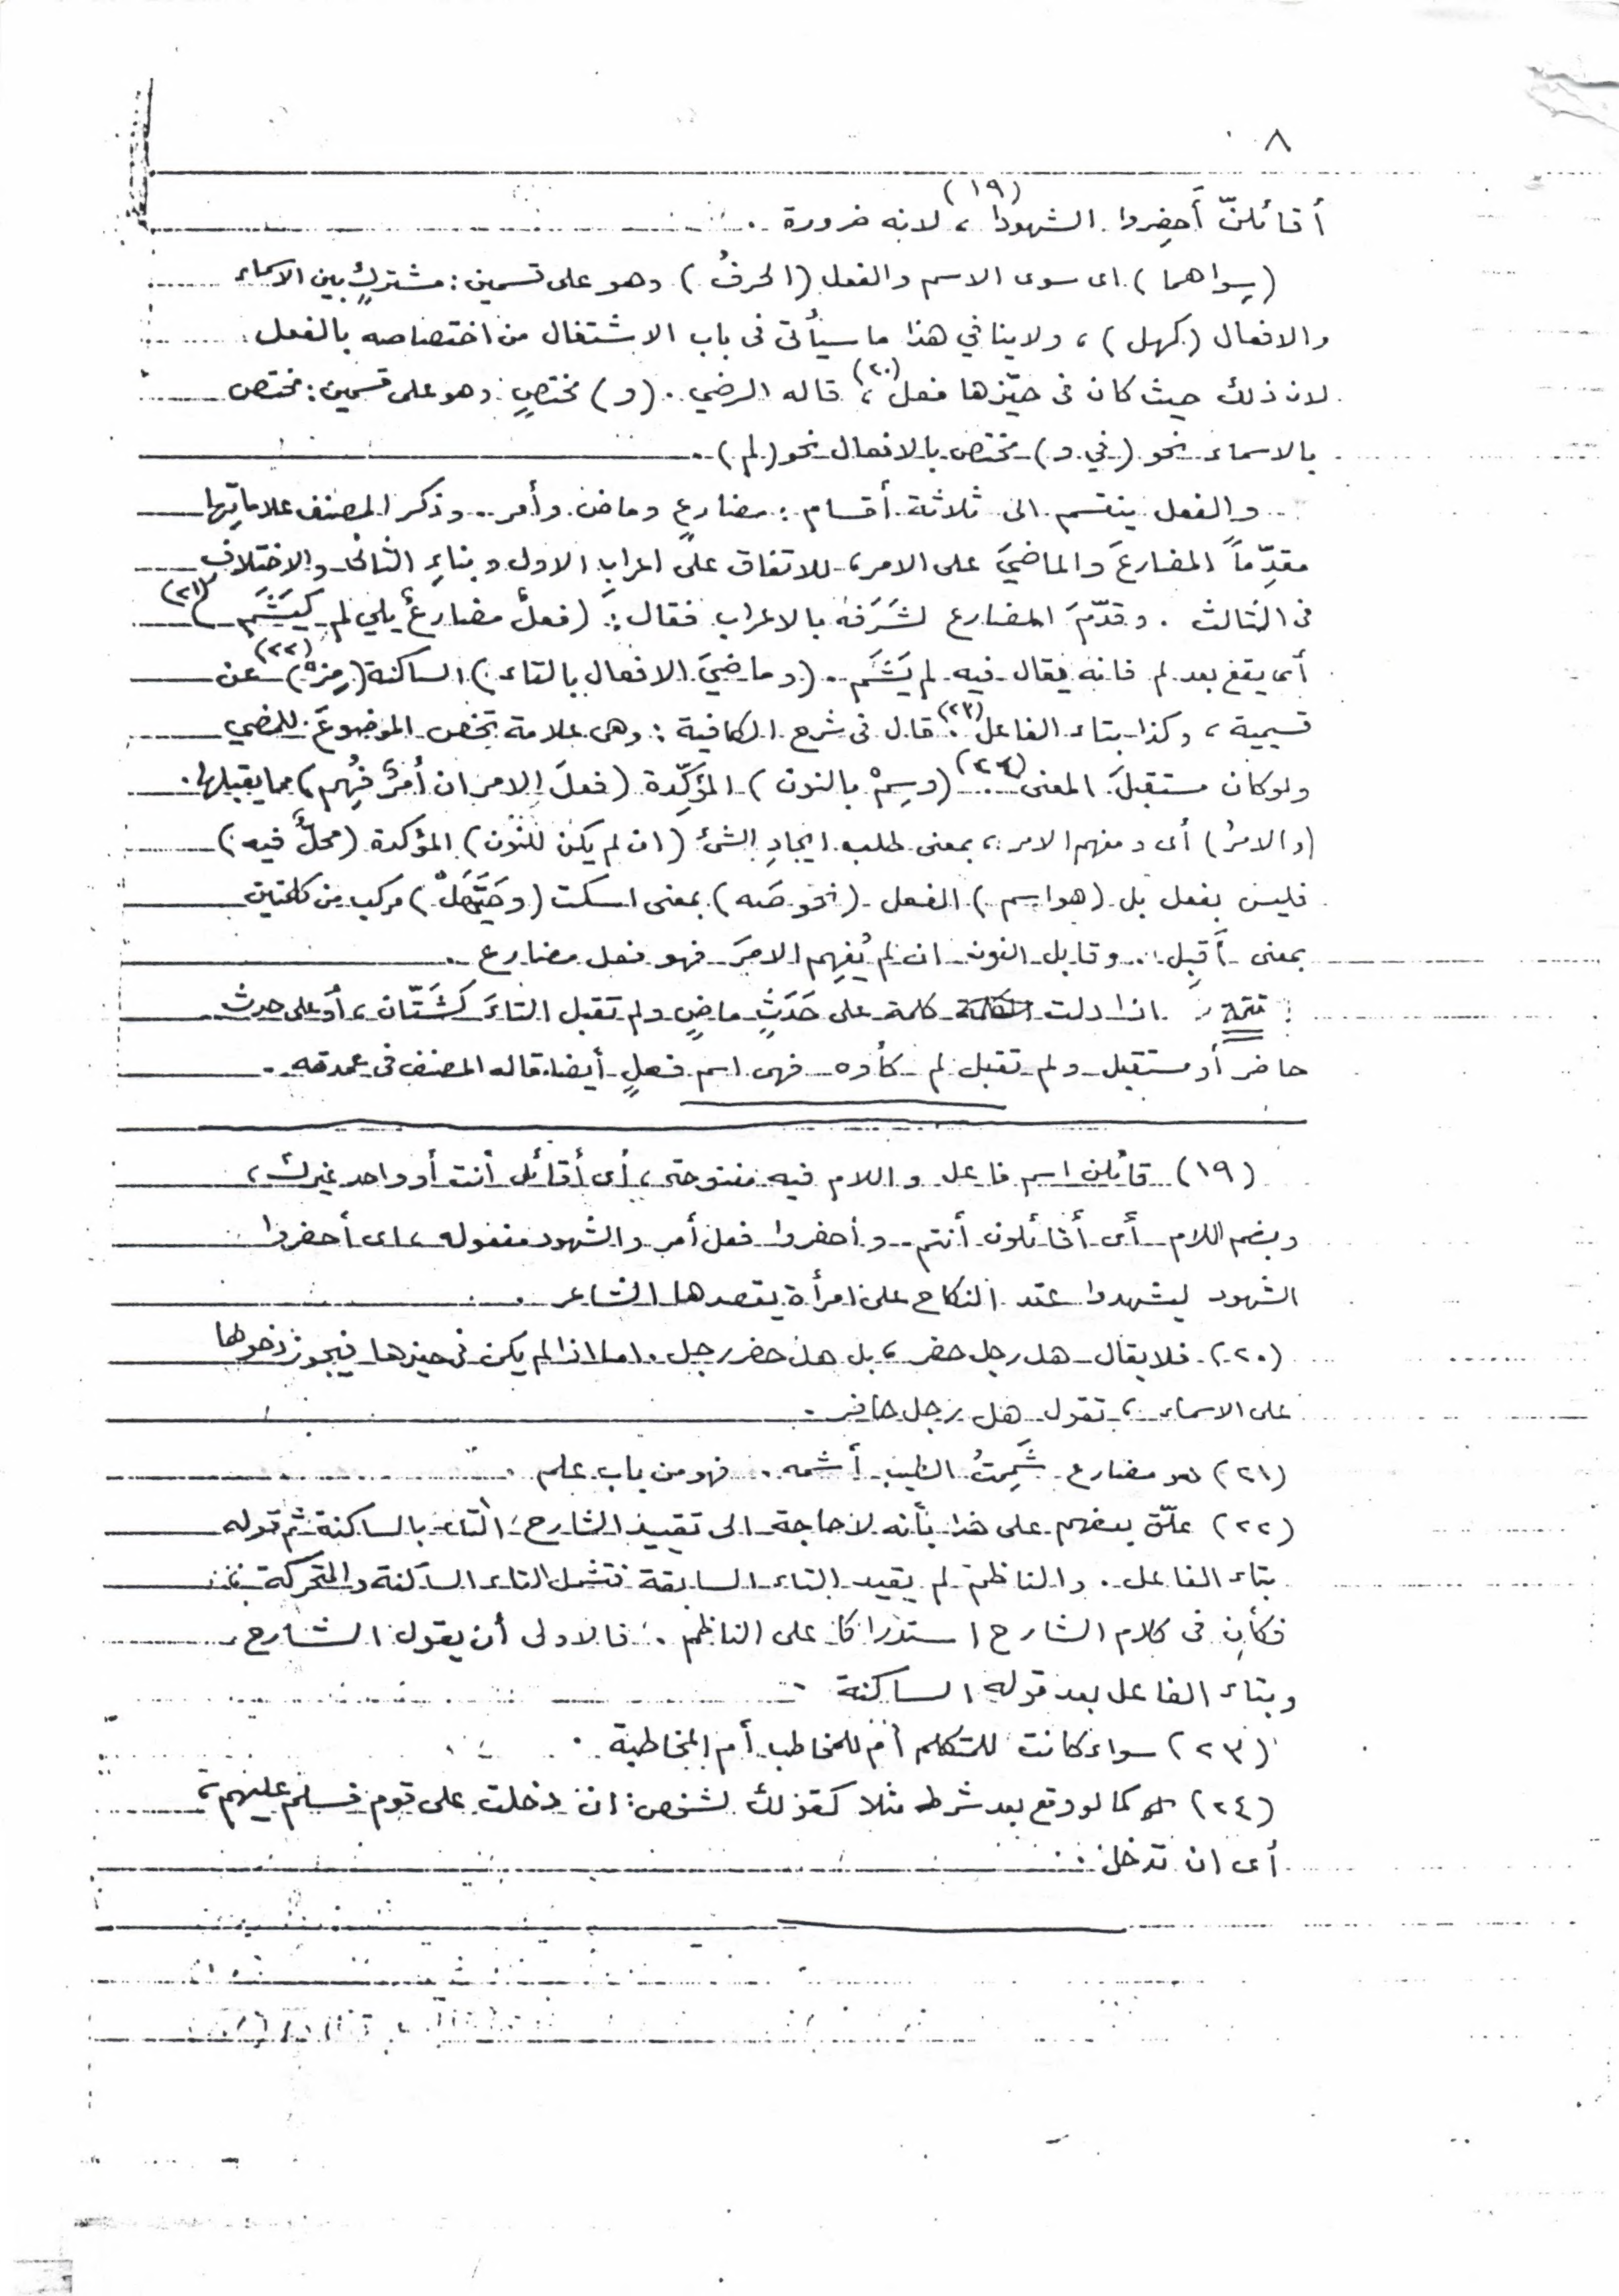 ٨
أقائلنّ أَحضِروا الشهودا (١٩)، لانه ضرورة .
(سِواهما) اى سوى الاسم والفعل (الحرفُ) وهو على قسمين : مشتركٍ بين الاسماء
والافعال (كهل) ، ولا ينافي هذا ما سيأتى فى باب الاشتغال من اختصاصه بالفعل
لان ذلك حيث كان فى حيّزها فعل (٢٠)، قاله الرضي . (و) مختصٍ وهو على قسمين : مختص
بالاسماء نحو (في و) مختص بالافعال نحو (لم) .
والفعل ينقسم الى ثلاثة أقسام : مضارعٍ وماض وأمر . وذكر المصنف علاماتِها
مقدِّماً المضارعَ والماضيَ على الامر ، للاتفاق على اعرابِ الاول وبناءِ الثانى والاختلاف
فى الثالث . وقدّمَ المضارع لشَرَفه بالاعراب فقال : (فعلٌ مضارعٌ يلي لم كَيَشَم) (٢١)
أى يقع بعد لم فانه يقال فيه لم يَشَم . (وماضيَ الافعال بالتاء) الساكنة (مِزْ) (٢٢) عن
قسيمية ، وكذا بتاء الفاعل (٢٣). قال فى شرح الكافية : وهى علامة تخص الموضوعَ للمضي
ولوكان مستقبلَ المعنى (٢٤) . (وسِمْ بالنون) المؤكِّدة (فعلَ الامر ان أمرٌ فُهِم) مما يقبلها .
(والامرُ) أى ومفهم الامر ، بمعنى طلب ايجادِ الشئ (ان لم يكن للنون) المؤكدة (محلٌّ فيه)
فليس بفعل بل (هو اسم) الفعل (نحو صَه) بمعنى اسكت (وحَيَّهَلْ) مركب من كلمتين
بمعنى أَقبِل . وقابل النون ان لم يُفهِم الامرَ فهو فعل مضارع .
تتمة ، اذا دلت كلمة على حَدَثٍ ماضٍ ولم تقبل التاءَ كَشَتّان ، أو على حدث
حاضر أو مستقبل ولم تقبل لم كأوه فهى اسم فعلٍ أيضا قاله المصنف فى عمدته .
(١٩) قائلن اسم فاعل واللام فيه مفتوحة ، أى أقائل أنت أو واحد غيرك ،
وبضم اللام أى أقائلون أنتم . وأحضروا فعل أمر والشهود مفعوله ، اى أحضروا
الشهود ليشهدوا عقد النكاح على امرأة يقصدها الشاعر .
(٢٠) فلا يقال هل رجل حضر ، بل هل حضر رجل . اما اذا لم يكن فى حيزها فيجوز دخولها
على الاسماء ، تقول هل رجل حاضر .
(٢١) هو مضارع شَمِمتُ الطيب أشمه . فهو من باب علم .
(٢٢) علّق بعضهم على هذا بأنه لا حاجة الى تقييد الشارح التاء بالساكنة ثم قوله
بتاء الفاعل . والناظم لم يقيد التاء السابقة فتشمل التاء الساكنة والمتحركة
فكأن فى كلام الشارح استدراكا على الناظم . فالاولى أن يقول الشارح
وبتاء الفاعل بعد قوله الساكنة
(٢٣) سواء كانت للمتكلم أم للمخاطب أم المخاطبة .
(٢٤) كما لو وقع بعد شرط مثلا كقولك لشخص : ان دخلت على قوم فسلم عليهم ،
أى ان تدخل .